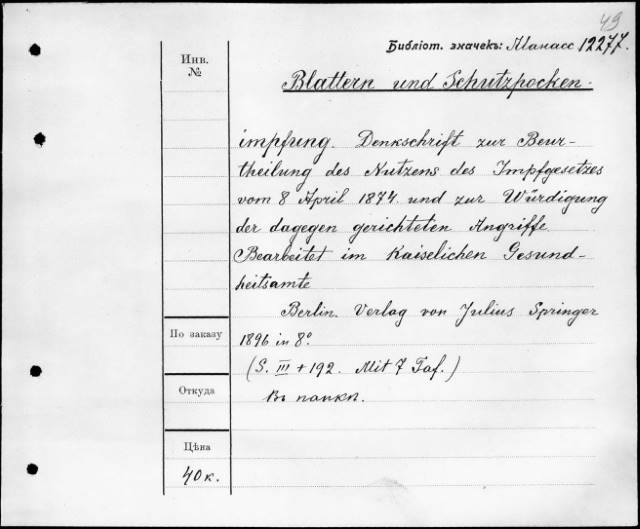 49
Библіот. значекъ: Манасс 12277.
Инв.
№
Blattern und Schutzpocken-
impfung. Denkschrift zur Beur-
theilung des Nutzens des Impfgesetzes
vom 8 April 1874 und zur Würdigung
der dagegen gerichteten Angriffe.
Bearbeitet im Kaiselichen Gesund-
heitsamte
Berlin. Verlag von Julius Springer
По заказу
1896 in 8°.
(S. III + 192. Mit 7 Taf.)
Откуда
Въ папкѣ.
Цѣна
40 к.